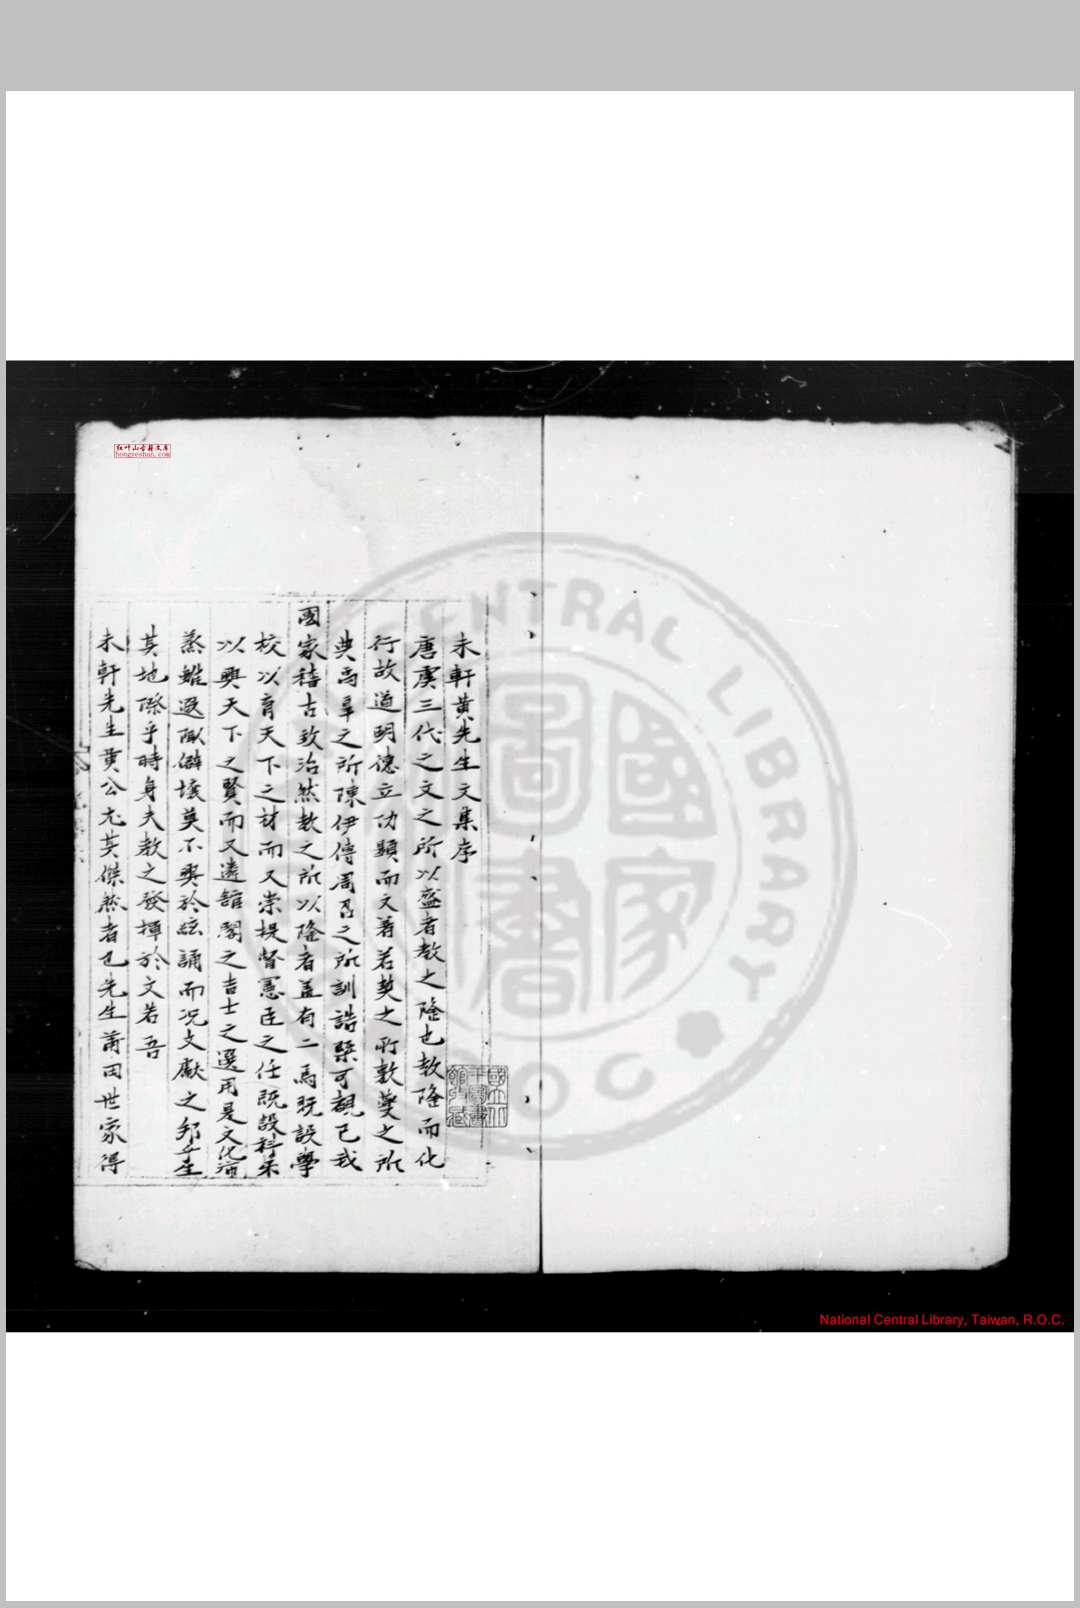 未軒黄先生文集序
唐虞三代之文之所以盛者教之隆也教隆而化
行故道明德立功顯而文著若契之所敷夔之所
典禹皐之所陳伊傅周召之所訓誥槩可覩已我
國家稽古致治然教之所以隆者盖有二焉既設學
校以育天下之材而又崇提督憲臣之任既設科朱
以興天下之賢而又遴館閣之吉士之選用是文化
蒸雖遐陬僻壤莫不興於絃誦而况文獻之邦生
其地際乎時身夫教之發揮於文若吾
未軒先生黄公尤其傑然者已先生莆田世家得
红叶山古籍文库
hongyeshan.com
CENTRAL LIBRARY
ROC
國家圖書
National Central Library, Taiwan, R.O.C.